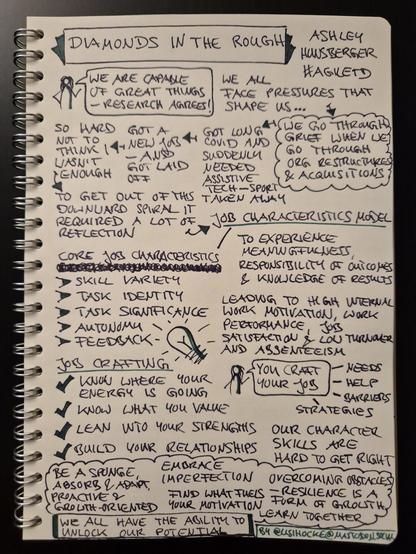 DIAMONDS IN THE ROUGH
ASHLEY
HUNSBERGER
#AGILETD
WE ARE CAPABLE
OF GREAT THINGS
- RESEARCH AGREES!
WE ALL
FACE PRESSURES THAT
SHAPE US...
WE GO THROUGH
GRIEF WHEN WE
GO THROUGH
ORG RESTRUCTURES
& ACQUISITIONS
GOT LONG
COVID AND
SUDDENLY
NEEDED
ASSISTIVE
TECH - SPORT
TAKEN AWAY
GOT A
NEW JOB
- AND
GOT LAID
OFF
SO HARD
NOT TO
THINK I
WASN'T
ENOUGH
TO GET OUT OF THIS
DOWNWARD SPIRAL IT
REQUIRED A LOT OF
REFLECTION
JOB CHARACTERISTICS MODEL
TO EXPERIENCE
MEANINGFULNESS,
RESPONSIBILITY OF OUTCOMES
& KNOWLEDGE OF RESULTS
LEADING TO HIGH INTERNAL
WORK MOTIVATION, WORK
PERFORMANCE, JOB
SATISFACTION & LOW TURNOVER
AND ABSENTEEISM
CORE JOB CHARACTERISTICS
SKILL VARIETY
TASK IDENTITY
TASK SIGNIFICANCE
AUTONOMY
FEEDBACK
JOB CRAFTING
KNOW WHERE YOUR
ENERGY IS GOING
KNOW WHAT YOU VALUE
LEAN INTO YOUR STRENGTHS
BUILD YOUR RELATIONSHIPS
YOU CRAFT
YOUR JOB
NEEDS
HELP
BARRIERS
STRATEGIES
OUR CHARACTER
SKILLS ARE
HARD TO GET RIGHT
BE A SPONGE,
ABSORB & ADAPT,
PROACTIVE &
GROWTH-ORIENTED
EMBRACE
IMPERFECTION
FIND WHAT FUELS
YOUR MOTIVATION
OVERCOMING OBSTACLES
- RESILIENCE IS A
FORM OF GROWTH,
LEARN TOGETHER
WE ALL HAVE THE ABILITY TO
UNLOCK OUR POTENTIAL
BY @LISIHOCKE@MASTODON.SOCIAL